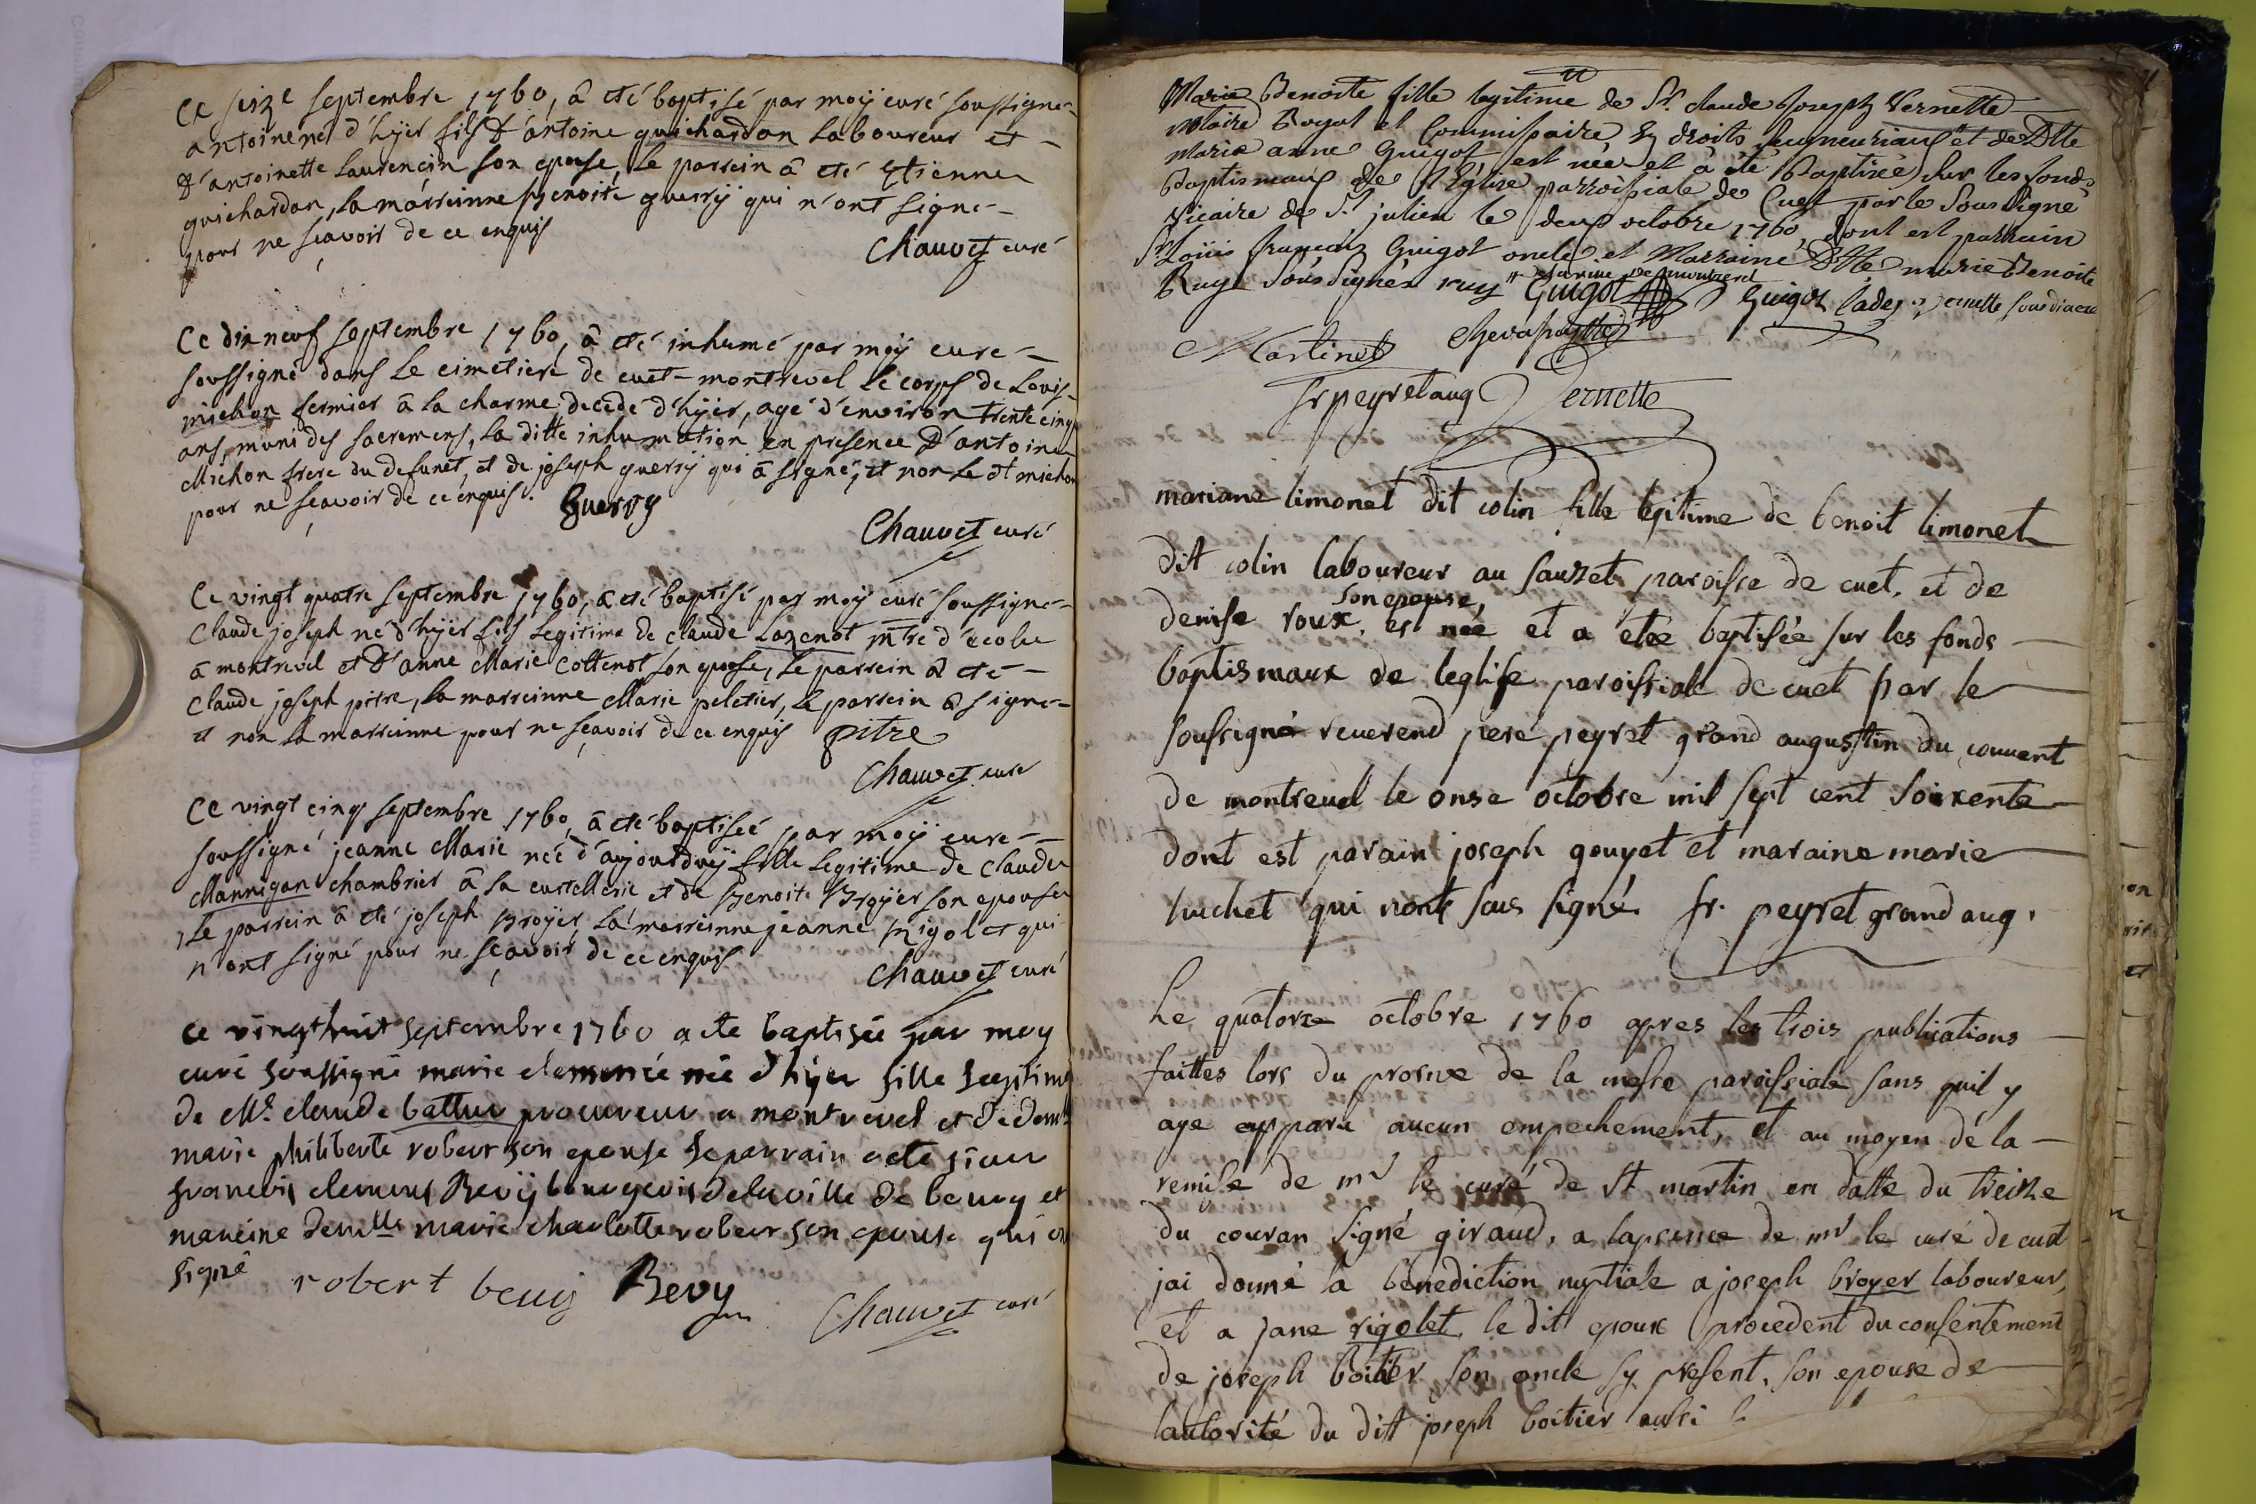 Ce seize septembre 1760, â eté baptisé par moÿ curé soussigné
antoine né d'hÿer fils d'antoine guichardon laboureur et
d'antoinette Laurençin son epouse, le parrein â eté Etienne
guichardon, la marreinne benoite guerrÿ qui n'ont signé
pour ne sçavoir de ce enquis
Chauvet curé
Ce dix neuf septembre 1760, â eté inhumé par moÿ curé
soussigné dans le cimetiere de cuet-montrevel le corps de Louis
michon fermier â la charme decedé d'hÿer, agé d'environ trente cinq
ans, muni des sacremens, la ditte inhumation en presence d'antoine
Michon frere du defunct, et de joseph guerrÿ qui â signé, et non le dt michon
pour ne sçavoir de ce enquis. Guerry
Chauvet curé
Ce vingt quatre septembre 1760, â eté baptisé par moÿ curé soussigné
Claude joseph né d'hÿer fils legitime de claude Lozenot mtre d'ecole
â montrevel et d'anne Marie Cottenot son epouse, le parrein â eté
Claude joseph pitre, la marreinne Marie peletier, le parrein â signé
et non la marreinne pour ne sçavoir de ce enquis pitre
Chauvet curé
Ce vingt cinq septembre 1760, â eté baptiseé par moÿ curé
soussigné jeanne Marie née d'aujourdhuÿ fille legitime de Claude
Mannigan chambrier â la curtellerie et de benoite Broÿer son epouse
Le parrein â eté joseph Broÿer, la marreinne jeanne Rigolet qui
n'ont signé pour ne sçavoir de ce enquis
Chauvet curé
ce vingthuit septembre 1760 a ete baptisée par moy
curé soussigné marie clemence née d'hÿer fille legitime
de Mr. claude battur procureur a montrevel et de dem.lle
marie philiberte robert son epouse le parrain a ete sieur
francois clemens Bevÿ bourgeois de la ville de bourg et
mareine demlle marie charlotte robert son epouse qui ont
signé
robert bevy Bevy
Chauvet curé
Marie Benoite fille legitime de Sr. claude Joseph Vernette
Notaire Royal et Commissaire Es droits seigneuriaux et de Dlle
Marie anne Guigot est née et a été Baptisée sur les fonds
Baptismaux de l'Eglise parroissiale de Cuet par le Soussigné
vicaire de St. julien le deux octobre 1760, dont est parrain
Sr. Loüis françois Guigot oncle et Marraine Dlle marie Benoite
Ruyt Sousignés ruyt Guigot Guigot Cadet Vernette sousdiacre
Martinet
fr peyret aug Vernette
mariane limonet dit colin fille legitime de benoit limonet
dit colin laboureur au sauzet paroisse de cuet, et de
denise roux son epouse, est née et a etée baptisée sur les fonds
baptismaux de leglise paroissiale de cuet par le
soussigné reverend pere peyret grand augustin du couvent
de montrevel le onse octobre mil sept cent soixente
dont est parain joseph gouyet et maraine marie
huchet qui nont sous signé. fr. peyret grand aug.
Le quatorze octobre 1760 apres les trois publications
faittes lors du prosne de la messe paroissiale sans quil y
aye apparu aucun empechement, et au moyen de la
remise de mr le curé de st martin en datte du treize
du couran signé giraud, a lapsence de mr le curé de cuet
jai donné la benediction nuptiale a joseph broyer laboureur,
et a jane rigolet, le dit epoux procedent du consentement
de joseph boitier son oncle sy present, son epouse de
lautorité du dit joseph boitier aussi